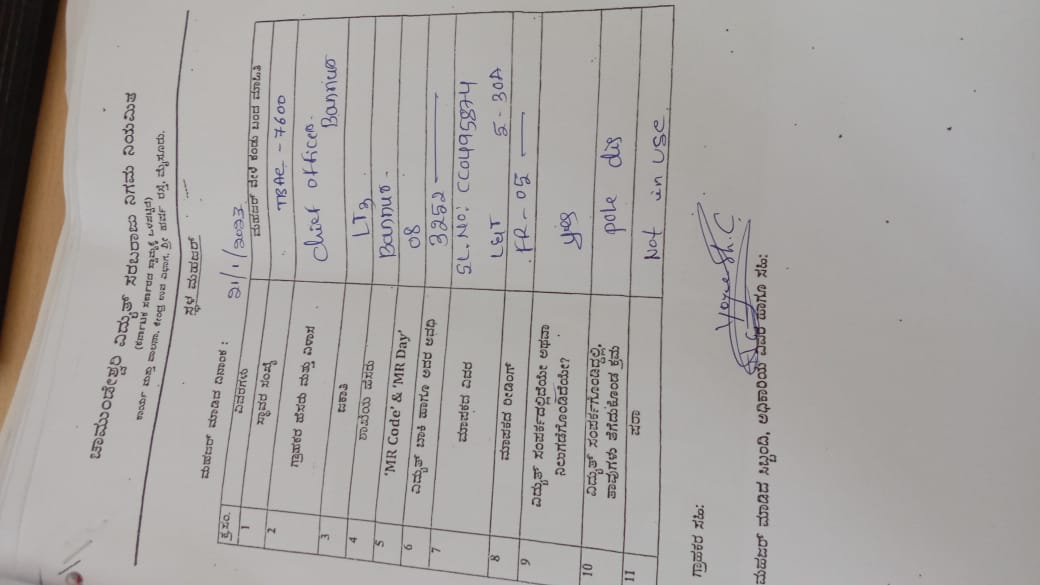 ಚಾಮುಂಡೇಶ್ವರಿ ವಿದ್ಯುತ್ ಸರಬರಾಜು ನಿಗಮ ನಿಯಮಿತ
(ಕರ್ನಾಟಕ ಸರ್ಕಾರದ ಸ್ವಾಮ್ಯಕ್ಕೆ ಒಳಪಟ್ಟಿದೆ)
ಕಾರ್ಯ ಮತ್ತು ಪಾಲನಾ, ಕೇಂದ್ರ ಉಪ ವಿಭಾಗ, ಶ್ರೀ ಹರ್ಷ ರಸ್ತೆ, ಮೈಸೂರು.
ಸ್ಥಳ ಮಹಜರ್
ಮಹಜರ್ ಮಾಡಿದ ದಿನಾಂಕ : 21/1/2023
ಕ್ರ.ಸಂ. ವಿವರಗಳು ಮಹಜರ್ ವೇಳೆ ಕಂಡು ಬಂದ ಮಾಹಿತಿ
1 ಸ್ಥಾವರ ಸಂಖ್ಯೆ TBAE - 7600
2 ಗ್ರಾಹಕರ ಹೆಸರು ಮತ್ತು ವಿಳಾಸ Chief officer.
Bannur
3 ಜಕಾತಿ LT3
4 ಶಾಖೆಯ ಹೆಸರು Bannur.
5 'MR Code' & 'MR Day' 08
6 ವಿದ್ಯುತ್ ಬಾಕಿ ಹಾಗೂ ಅದರ ಅವಧಿ 3252
7 ಮಾಪಕದ ವಿವರ SL.No: CC0495874
L&T 5-30A
8 ಮಾಪಕದ ರೀಡಿಂಗ್ FR-05
9 ವಿದ್ಯುತ್ ಸಂಪರ್ಕದಲ್ಲಿದೆಯೇ ಅಥವಾ
ನಿಲುಗಡೆಗೊಂಡಿದೆಯೇ? yes
10 ವಿದ್ಯುತ್ ಸಂಪರ್ಕಗೊಂಡಿದ್ದಲ್ಲಿ,
ತಾವುಗಳು ತೆಗೆದುಕೊಂಡ ಕ್ರಮ pole dis
11 ಷರಾ Not in use
ಗ್ರಾಹಕರ ಸಹಿ:
Yogesh.C.
ಮಹಜರ್ ಮಾಡಿದ ಸಿಬ್ಬಂದಿ, ಅಧಿಕಾರಿಯ ವಿವರ ಹಾಗೂ ಸಹಿ: